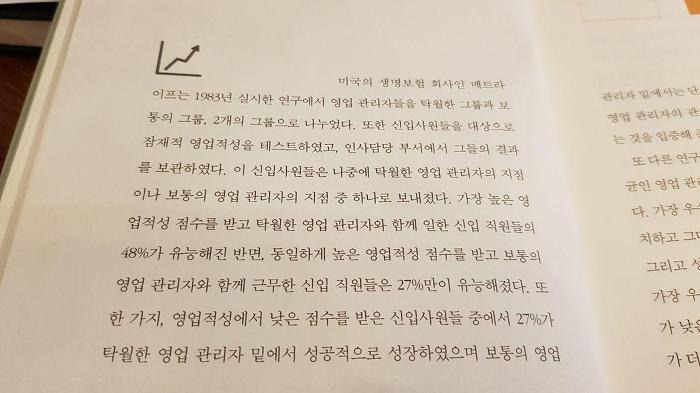 미국의 생명보험 회사인 메트라
이프는 1983년 실시한 연구에서 영업 관리자들을 탁월한 그룹과 보
통의 그룹, 2개의 그룹으로 나누었다. 또한 신입사원들을 대상으로
잠재적 영업적성을 테스트하였고, 인사담당 부서에서 그들의 결과
를 보관하였다. 이 신입사원들은 나중에 탁월한 영업 관리자의 지점
이나 보통의 영업 관리자의 지점 중 하나로 보내졌다. 가장 높은 영
업적성 점수를 받고 탁월한 영업 관리자와 함께 일한 신입 직원들의
48%가 유능해진 반면, 동일하게 높은 영업적성 점수를 받고 보통의
영업 관리자와 함께 근무한 신입 직원들은 27%만이 유능해졌다. 또
한 가지, 영업적성에서 낮은 점수를 받은 신입사원들 중에서 27%가
탁월한 영업 관리자 밑에서 성공적으로 성장하였으며 보통의 영업
관리자 밑에서는 단
영업 관리자의 관
는 것을 입증해
또 다른 연구
균인 영업 관리
다. 가장 우수
치하고 그다
그리고 성
가장 우
가 낮은
가 더